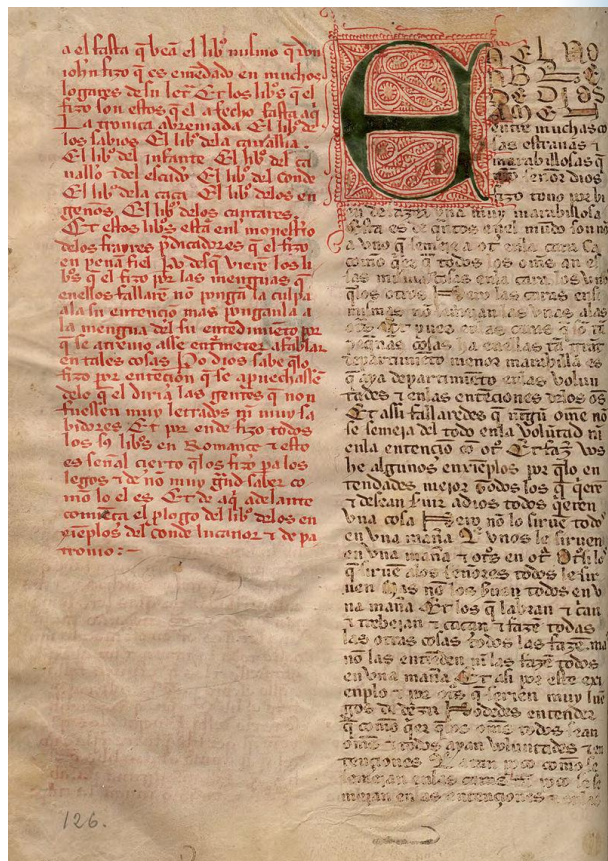 a el fasta q̃ veã el lib̾ mismo q̃ don
iohn fizo q̃ es emẽdado en muchos
logares de su letr̃ Et los lib̾s q̃ el
fizo son estos q̃ el a fecho fasta aq̃
La cronica abreuiada El lib̾ de
los sabios El lib̾ dela caualła
El lib̾ del infante El lib̾ del ca
uallo ⁊ del escud̾o El lib̾ del conde
El lib̾ dela caça El lib̾ delos en
gennos El lib̾ delos cantares
Et estos lib̾s estã enl monest̾io
delos frayres p̃dicadores q̃ el fizo
en peña fiel P̾o desq̃ vierẽ los li
b̾s q̃ el fizo por las menguas q̃
enellos fallarẽ nõ pongã la culpa
ala su entẽçiõ mas ponganla a
la mengua del su entẽdimiẽto por
q̃ se atreuio asse ent̾meter a fablar
en tales cosas P̾o dios sabe q̃ lo
fizo por enteçiõn q̃ se ap̾uechassẽ
delo q̃ el diria las gentes q̃ non
fuessen muy letrados nj̃ muy sa
bidores Et por ende fizo todos
los sꝯ lib̾s en Romançe ⁊ esto
es señal çierto q̃ los fizo pa los
legos ⁊ de nõ muy g̃nd saber co
mo lo el es Et de aq̃ adelante
comiẽça el p̾logo del lib̾ delos en
xienplos del conde lucanor ⁊ de pa
tronio :-
EN EL NO
DIOS
entre muchas co
sas estrañas ⁊
marabillosas q̃
nr̃o señor dios
fizo touo por bi
en de fazer vna muy marabillosa
esta es de q̃ntos enel mũdo son nõ
a vno q̃ semeje a ot̾ enla cara Ca
como q̃er q̃ todos los oms an es
sas mismas cosas enla cara los vnos
q̃ los otros Pero las caras en si
mismas nõ semejan las vnas alas
ot̾s Et pues enlas caras q̃ sõ tã
peq̃ñas cosas ha enellas tã g̃nt
departimiẽto menor marabilla es
q̃ aya departimiẽto enlas volun
tades ⁊ enlas entẽçiones delos oms
Et assi fallaredes q̃ nĩgũ ome nõ
se semeja del todo enla volũtad nĩ
enla entẽçiõ cõ ot̾ Et faz̾ vos
he algunos enxiẽplos por q̃ lo en
tendades mejor todos los q̃ q̃erẽ
⁊ desean s̾uir a dios todos q̃eren
vna cosa Pero nõ lo siruẽ todos
en vna mañ̃a q̃ vnos le siruen
en vna mañ̃a ⁊ ot̾s en ot̾ Ot̾si los
q̃ siruẽ alos señores todos le sir
uen Mas nõ los siruẽ todos en v
na mañ̃a Et los q̃ labran ⁊ crian
⁊ trebejan ⁊ caçan ⁊ fazẽ todas
las otras cosas todos las fazẽ ma
nõ las entiẽden nĩ las fazẽ todos
en vna mañ̃a Et assi por este exẽ
enplo ⁊ por ot̾s q̃ seriẽn muy lue
gos de dezir Podedes entender
q̃ como q̃er q̃ los omes todos sean
omes ⁊ todos ayan voluntades ⁊ en
tençiones q̃ atan poco como se
semejan enlas caras tã poco se se
mejan enlas entençiones ⁊ enlas
126.